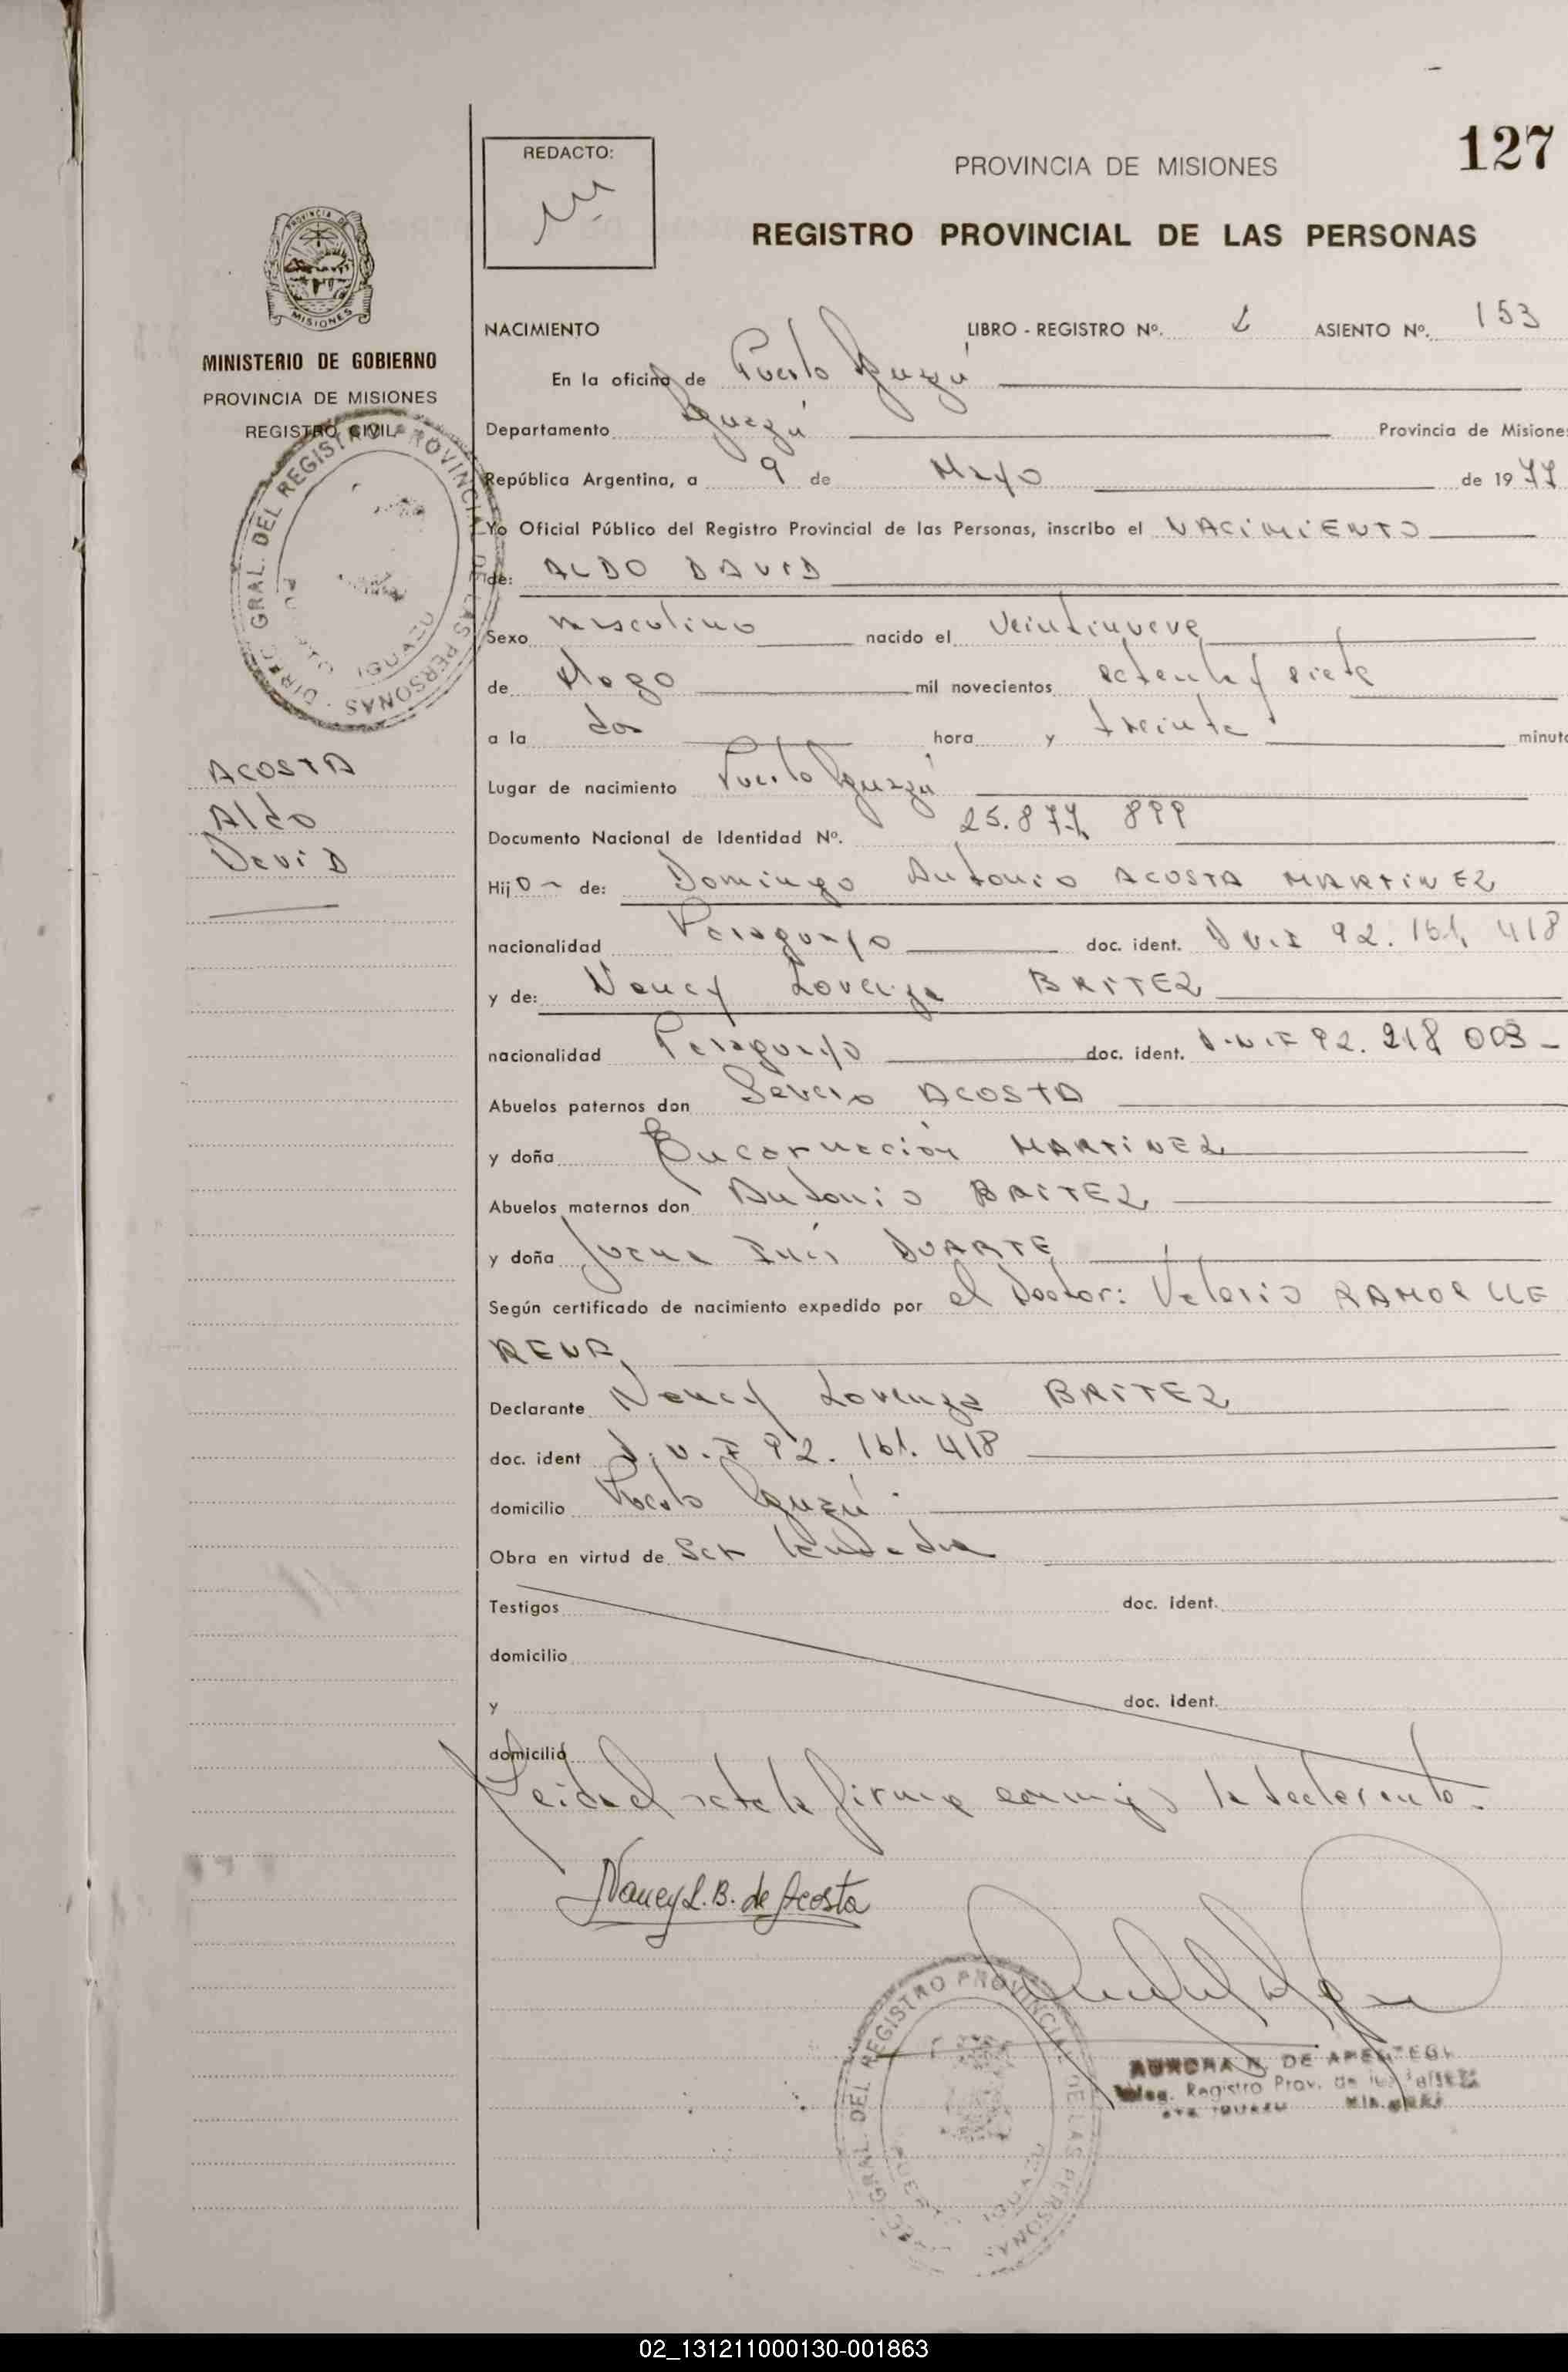 127
REDACTO:
PROVINCIA DE MISIONES
REGISTRO PROVINCIAL DE LAS PERSONAS
PROVINCIA DE
MISIONES
MINISTERIO DE GOBIERNO
PROVINCIA DE MISIONES
REGISTRO CIVIL
GRAL. DEL REGISTRO PROVINCIAL DE LAS PERSONAS
IGUAZU
ACOSTA
Aldo
David
NACIMIENTO LIBRO - REGISTRO Nº. ASIENTO Nº. 153
En la oficina de Puerto Iguazú
Departamento Iguazú Provincia de Misione
República Argentina, a 9 de Mayo de 1977
Yo Oficial Público del Registro Provincial de las Personas, inscribo el NACIMIENTO
de: ALDO DAVID
Sexo masculino nacido el veintinueve
de mil novecientos setenta y siete
a la dos hora y treinta minuto
Lugar de nacimiento Puerto Iguazú
Documento Nacional de Identidad Nº. 25.877.899
Hijo de: Domingo Antonio ACOSTA MARTINEZ
nacionalidad Paraguayo doc. ident. D.N.I 92.161.418
y de: Nancy Lorenza BRITEZ
nacionalidad Paraguayo doc. ident. D.N.I 92.218 003
Abuelos paternos don ACOSTA
y doña Encarnación MARTINEZ
Abuelos maternos don Antonio BRITEZ
y doña Juana Inés DUARTE
Según certificado de nacimiento expedido por el Doctor: Valerio
Declarante Nancy Lorenza BRITEZ
doc. ident D.N.I 92.161.418
domicilio Puerto Iguazú
Obra en virtud de ser
Testigos doc. ident.
domicilio
y doc. ident.
domicilio
Leida el acta la firma conmigo la declarante.
Nancy L.B. de Acosta
GRAL. DEL REGISTRO PROVINCIAL DE LAS PERSONAS
AURORA N. DE
Registro Prov. de las
02_131211000130-001863